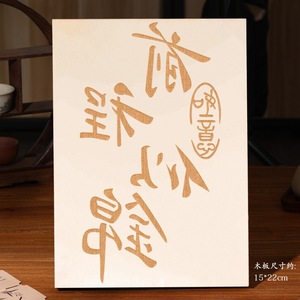 前程
似锦
木板尺寸约:
15*22cm